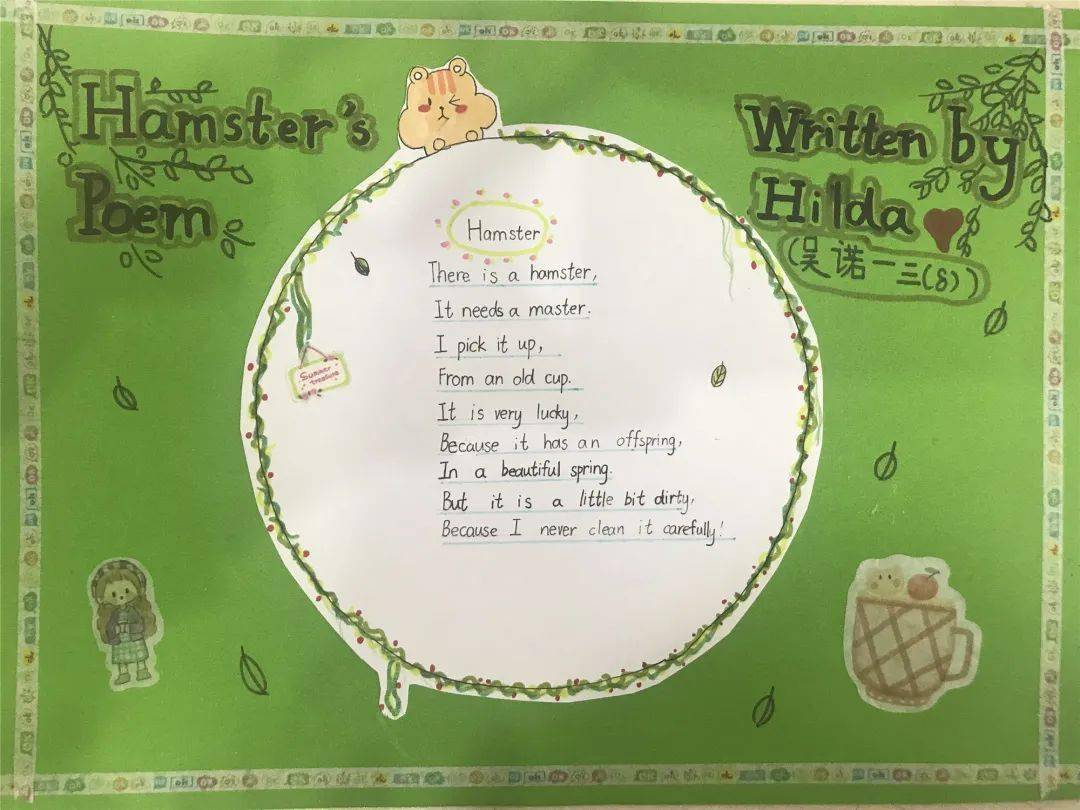 Hamster's
Poem
Written by
Hilda
(吴诺一三(8))
Hamster
There is a hamster,
It needs a master.
I pick it up,
From an old cup.
It is very lucky,
Because it has an offspring,
In a beautiful spring.
But it is a little bit dirty,
Because I never clean it carefully!
Summer
treasure